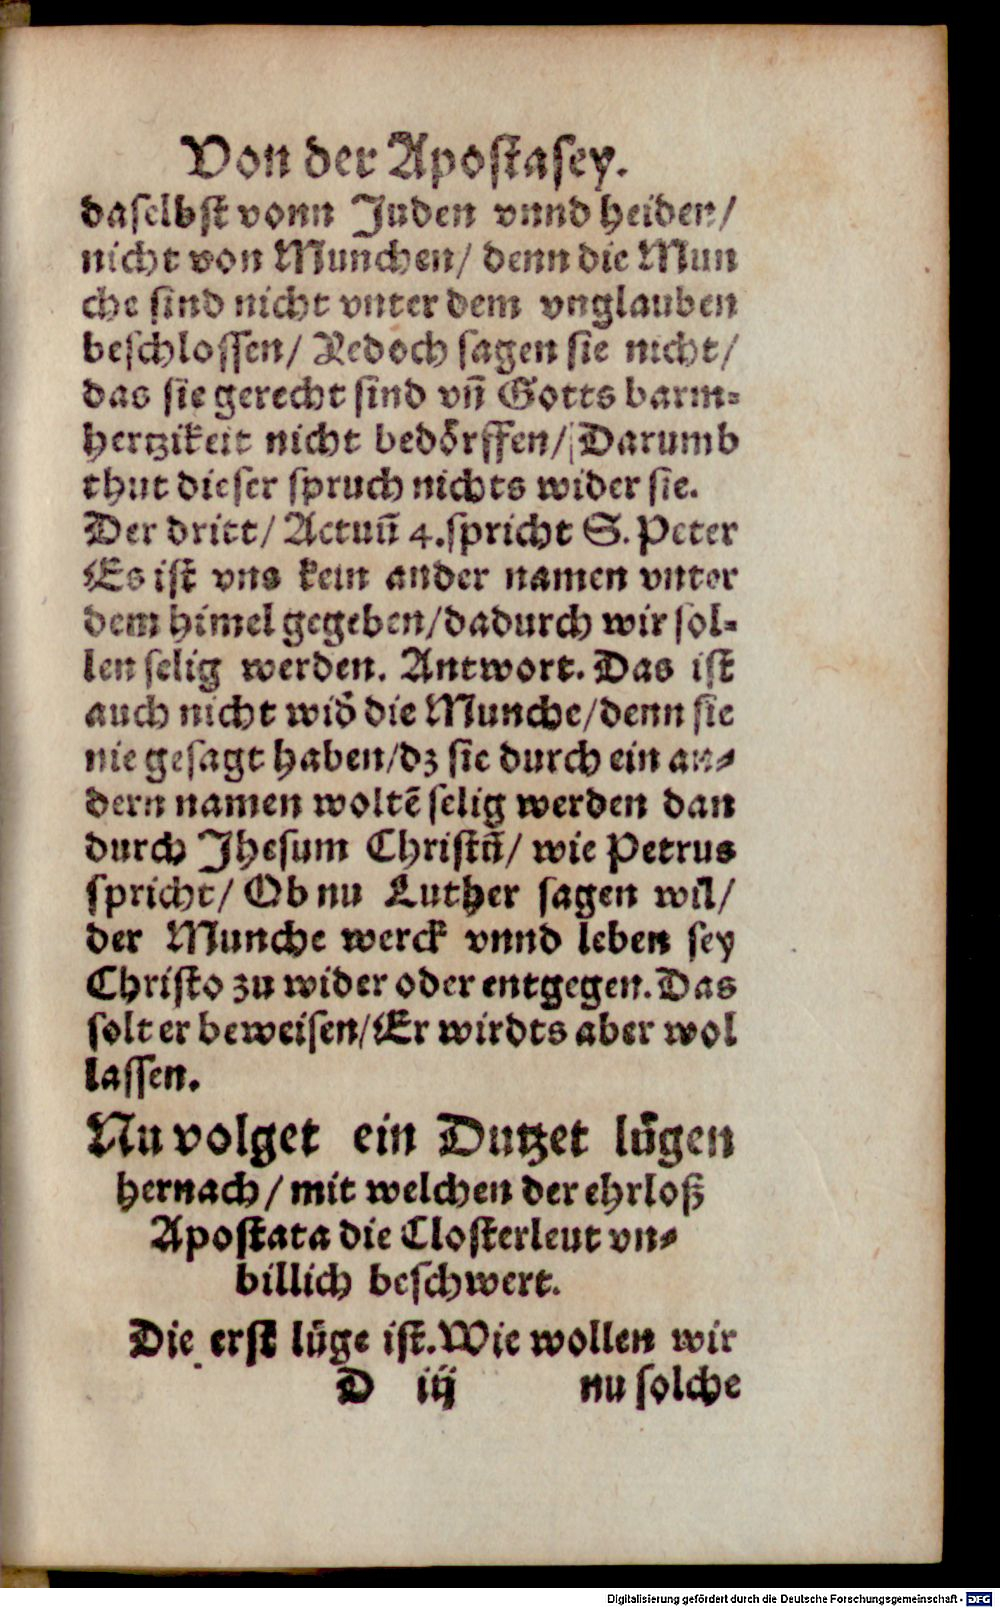 Von der Apostasey.
daselbst vonn Juden vnnd heiden/
nicht von Munchen/ denn die Mun
che sind nicht vnter dem vnglauben
beschlossen/ Yedoch sagen sie nicht/
das sie gerecht sind vñ Gotts barm⸗
hertzikeit nicht bedoͤrffen/ Darumb
thut dieser spruch nichts wider sie.
Der dritt/ Actuũ 4. spricht S. Peter
Es ist vns kein ander namen vnter
dem himel gegeben/dadurch wir sol⸗
len selig werden. Antwort. Das ist
auch nicht wid̕ die Munche/denn sie
nie gesagt haben/dz sie durch ein an⸗
dern namen woltē selig werden dan
durch Jhesum Christũ/ wie Petrus
spricht/ Ob nu Luther sagen wil/
der Munche werck vnnd leben sey
Christo zu wider oder entgegen. Das
solt er beweisen/Er wirdts aber wol
lassen.
Nu volget ein Dutzet luͤgen
hernach/ mit welchen der ehrloß
Apostata die Closterleut vn⸗
billich beschwert.
Die erst luͤge ist. Wie wollen wir
D iij nu solche
Digitalisierung gefördert durch die Deutsche Forschungsgemeinschaft - DFG